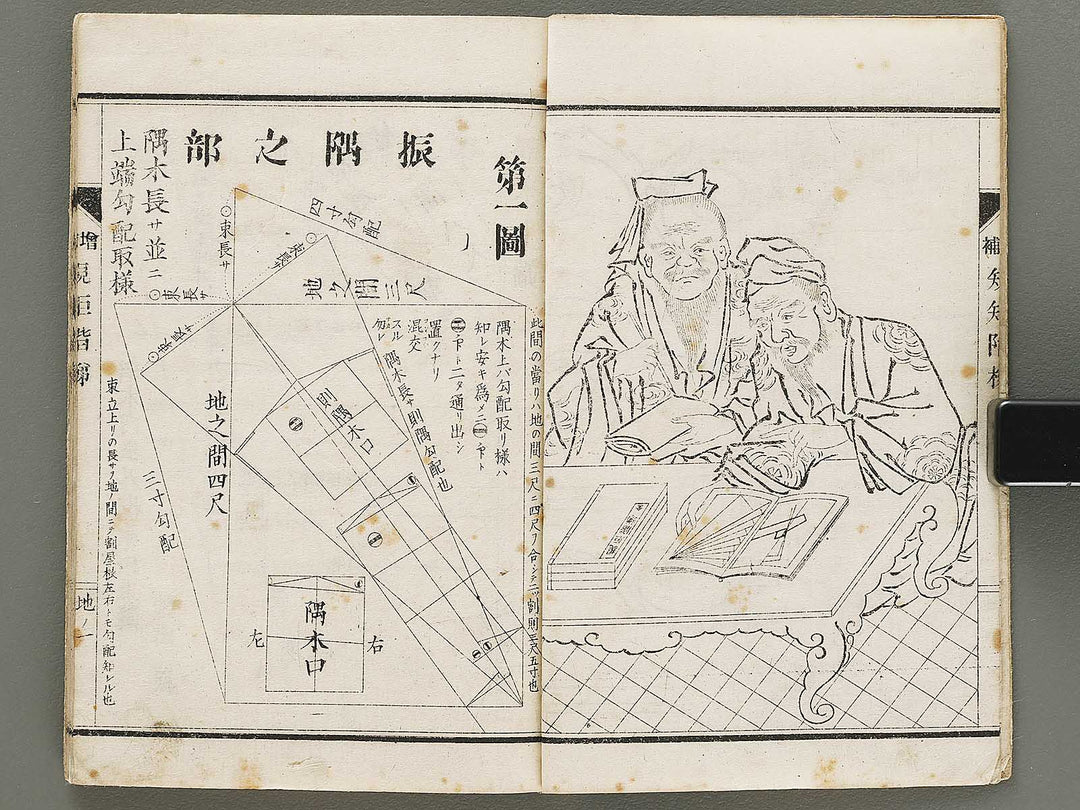 補
第一圖
振隅之部
隅木長サ並ニ
上端勾配取様
四寸勾配
地之間三尺
束長サ
束長サ
束長サ
束長サ
隅木上バ勾配取リ様ハ
知レ安キ爲メニ
ニタ通リ出シ
置クナリ
混交
スル
勿レ
隅木長サ則隅勾配也
則隅木口
地之間四尺
三寸勾配
隅木口
左
右
此間の當リハ地の間三尺ニ四尺ヲ合シテ二ツ割則三尺五寸也
束立上リの長サヲ地ノ間ニテ割
左右トモ勾配知レル也
増
地ノ一